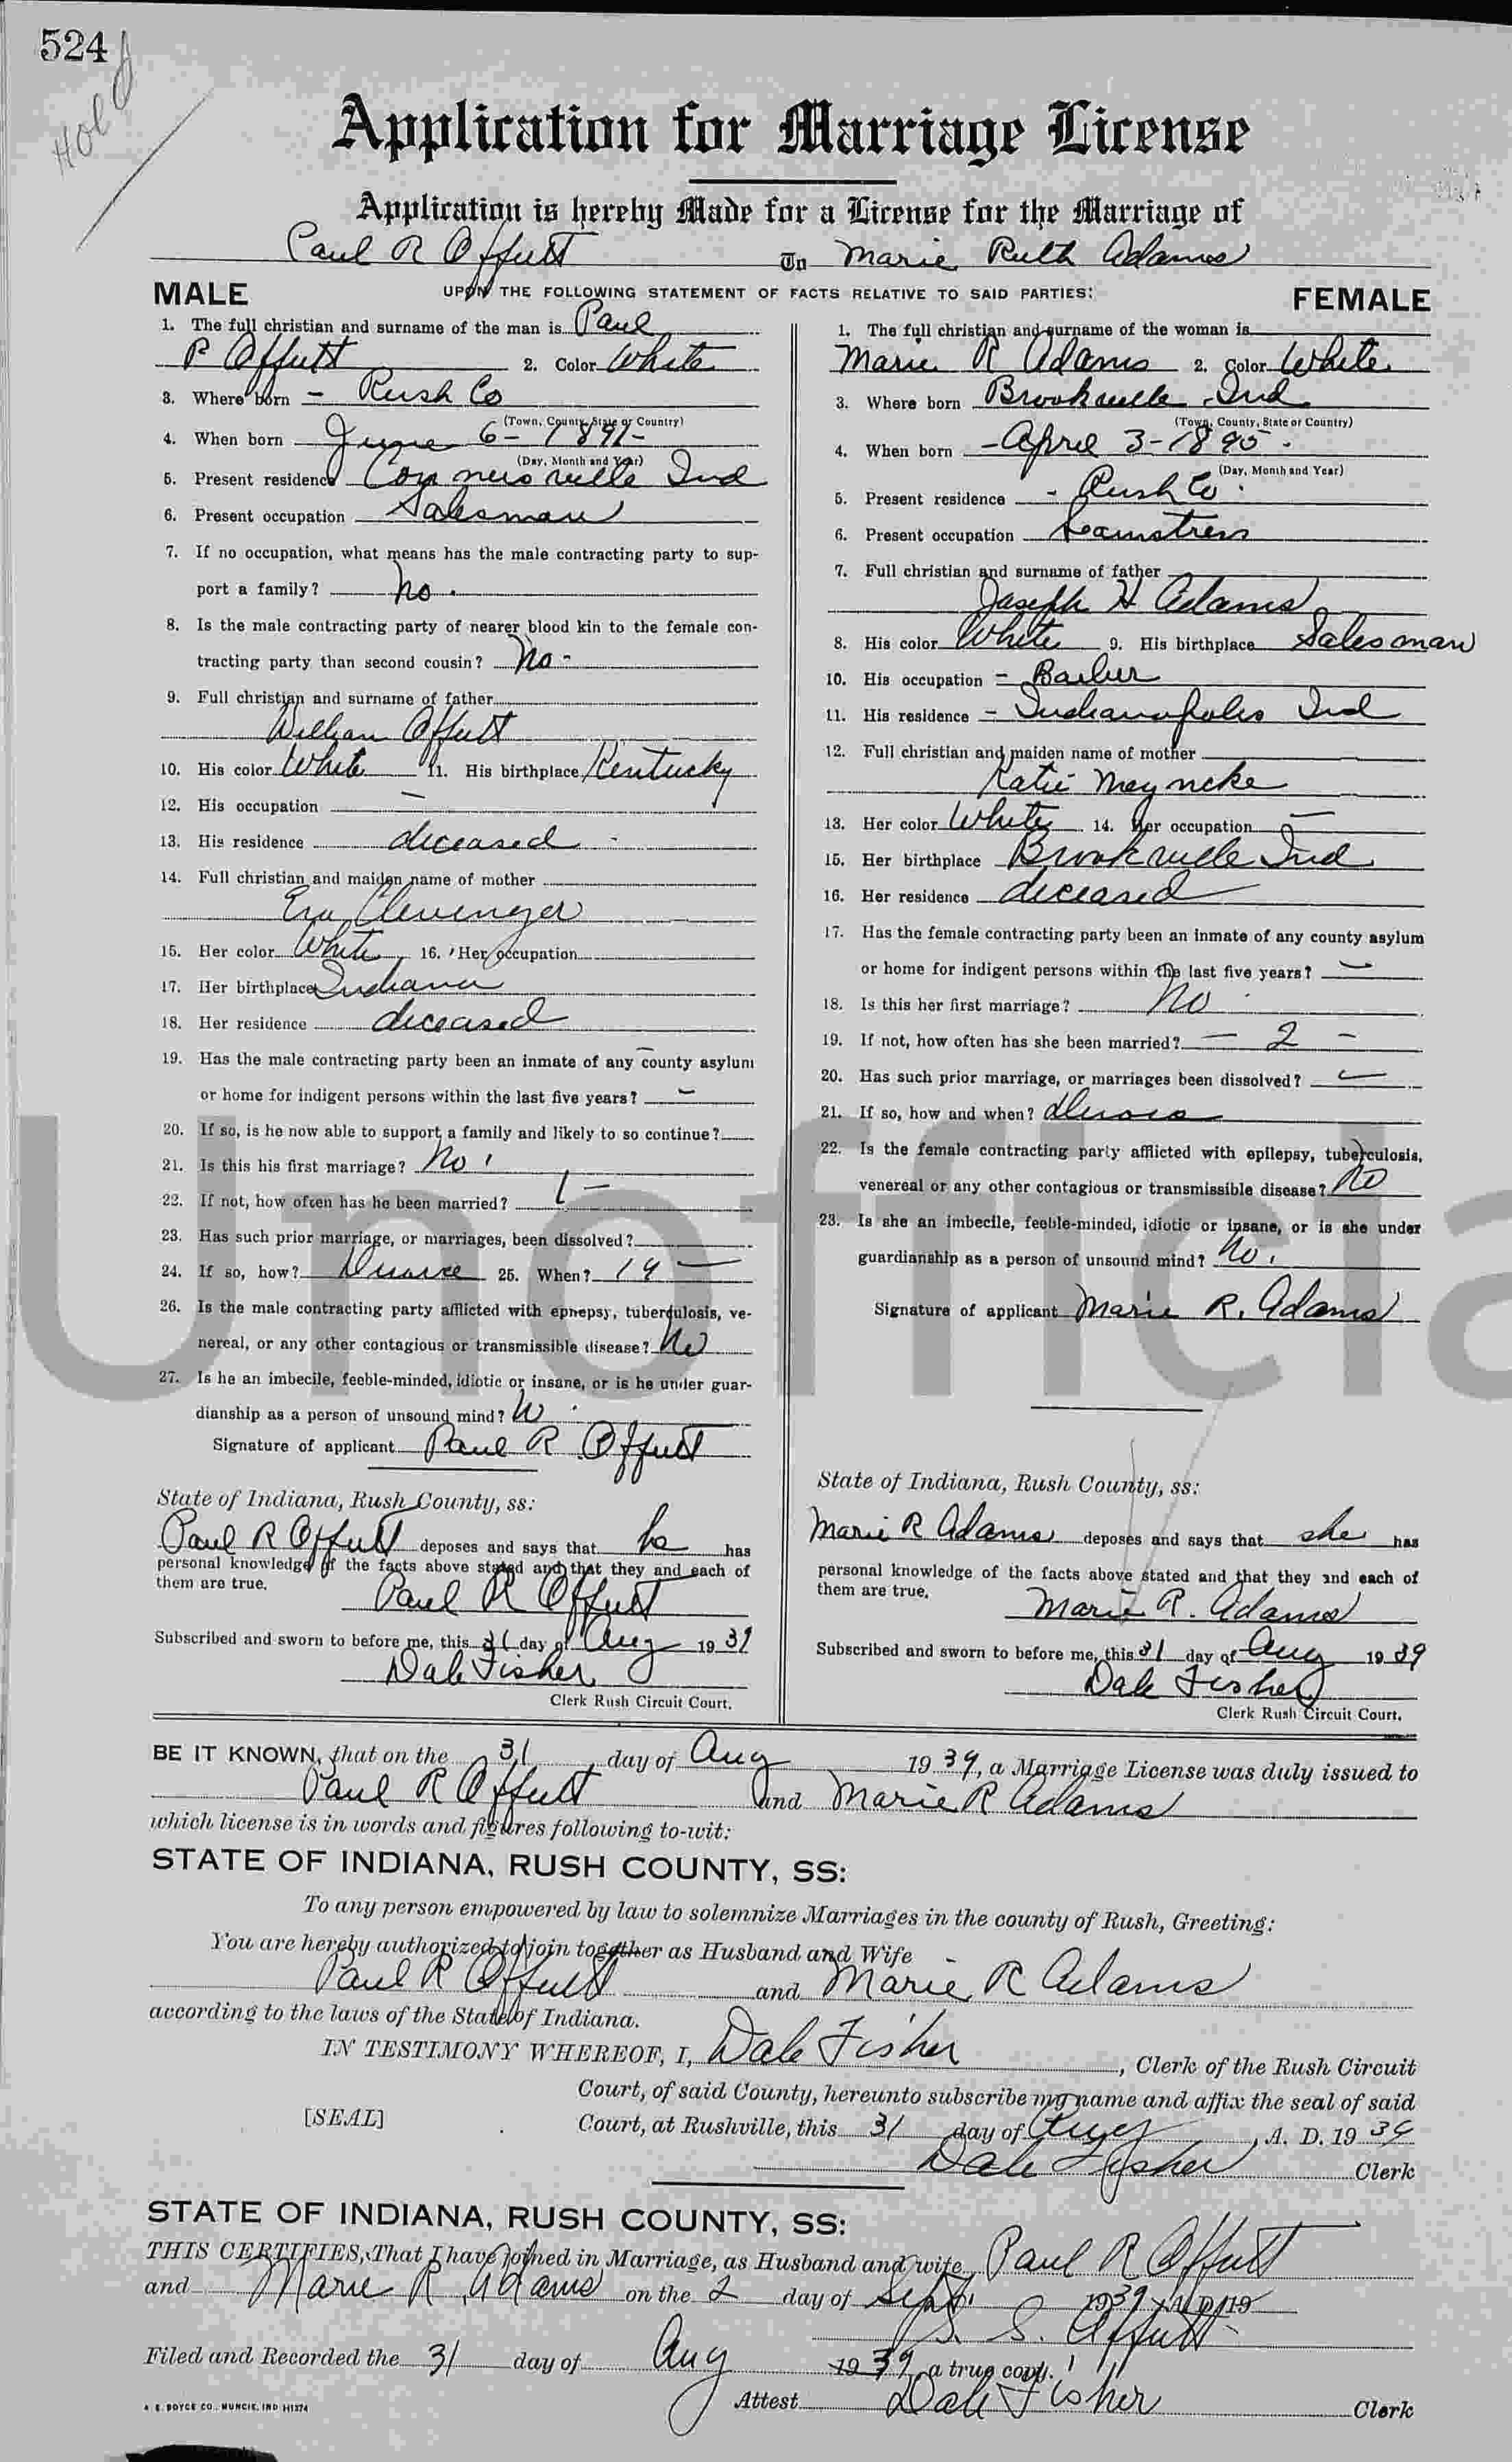 524
Hold
Application for Marriage License
Application is hereby Made for a License for the Marriage of
Paul R Offutt To Marie Ruth Adams
UPON THE FOLLOWING STATEMENT OF FACTS RELATIVE TO SAID PARTIES:
MALE
1. The full christian and surname of the man is Paul
R Offutt 2. Color White
3. Where born - Rush Co
(Town, County, State or Country)
4. When born June 6-1891-
(Day, Month and Year)
5. Present residence Connersville Ind
6. Present occupation Salesman
7. If no occupation, what means has the male contracting party to sup-
port a family? no.
8. Is the male contracting party of nearer blood kin to the female con-
tracting party than second cousin? No-
9. Full christian and surname of father
William Offutt
10. His color White 11. His birthplace Kentucky
12. His occupation —
13. His residence deceased -
14. Full christian and maiden name of mother
Eva Clevenger
15. Her color White 16. Her occupation
17. Her birthplace Indiana
18. Her residence deceased
19. Has the male contracting party been an inmate of any county asylum
or home for indigent persons within the last five years? -
20. If so, is he now able to support a family and likely to so continue?
21. Is this his first marriage? No
22. If not, how often has he been married? 1 -
23. Has such prior marriage, or marriages, been dissolved?
24. If so, how? Divorce 25. When? 19 —
26. Is the male contracting party afflicted with epilepsy, tuberculosis, ve-
nereal, or any other contagious or transmissible disease? No
27. Is he an imbecile, feeble-minded, idiotic or insane, or is he under guar-
dianship as a person of unsound mind? No
Signature of applicant Paul R Offutt
State of Indiana, Rush County, ss:
Paul R Offutt deposes and says that he has
personal knowledge of the facts above stated and that they and each of
them are true.
Paul R Offutt
Subscribed and sworn to before me, this 31 day of Aug 1939
Dale Fisher
Clerk Rush Circuit Court.
FEMALE
1. The full christian and surname of the woman is
Marie R Adams 2. Color White
3. Where born Brookville Ind
(Town, County, State or Country)
4. When born -April 3-1895-
(Day, Month and Year)
5. Present residence - Rush Co.
6. Present occupation Seamstress
7. Full christian and surname of father
Joseph H Adams
8. His color White 9. His birthplace Salesman
10. His occupation - Barber
11. His residence - Indianapolis Ind
12. Full christian and maiden name of mother
Katie Meyncke
13. Her color White 14. Her occupation —
15. Her birthplace Brookville Ind
16. Her residence deceased
17. Has the female contracting party been an inmate of any county asylum
or home for indigent persons within the last five years? -
18. Is this her first marriage? No
19. If not, how often has she been married? - 2 -
20. Has such prior marriage, or marriages been dissolved? -
21. If so, how and when? Divorce
22. Is the female contracting party afflicted with epilepsy, tuberculosis,
venereal or any other contagious or transmissible disease? No
23. Is she an imbecile, feeble-minded, idiotic or insane, or is she under
guardianship as a person of unsound mind? No.
Signature of applicant Marie R. Adams
State of Indiana, Rush County, ss:
Marie R Adams deposes and says that she has
personal knowledge of the facts above stated and that they and each of
them are true.
Marie R. Adams
Subscribed and sworn to before me, this 31 day of Aug 1939
Dale Fisher
Clerk Rush Circuit Court.
BE IT KNOWN, that on the 31 day of Aug 1939, a Marriage License was duly issued to
Paul R Offutt and Marie R Adams
which license is in words and figures following to-wit:
STATE OF INDIANA, RUSH COUNTY, SS:
To any person empowered by law to solemnize Marriages in the county of Rush, Greeting:
You are hereby authorized to join together as Husband and Wife
Paul R Offutt and Marie R Adams
according to the laws of the State of Indiana.
IN TESTIMONY WHEREOF, I, Dale Fisher, Clerk of the Rush Circuit
Court, of said County, hereunto subscribe my name and affix the seal of said
[SEAL] Court, at Rushville, this 31 day of Aug, A. D. 1939
Dale Fisher Clerk
STATE OF INDIANA, RUSH COUNTY, SS:
THIS CERTIFIES, That I have joined in Marriage, as Husband and wife, Paul R Offutt
and Marie R Adams on the 2 day of Sept. 1939
S. S. Offutt
Filed and Recorded the 31 day of Aug 1939, a true copy.
Attest Dale Fisher Clerk
A. E. BOYCE CO., MUNCIE, IND H1374
Unofficia